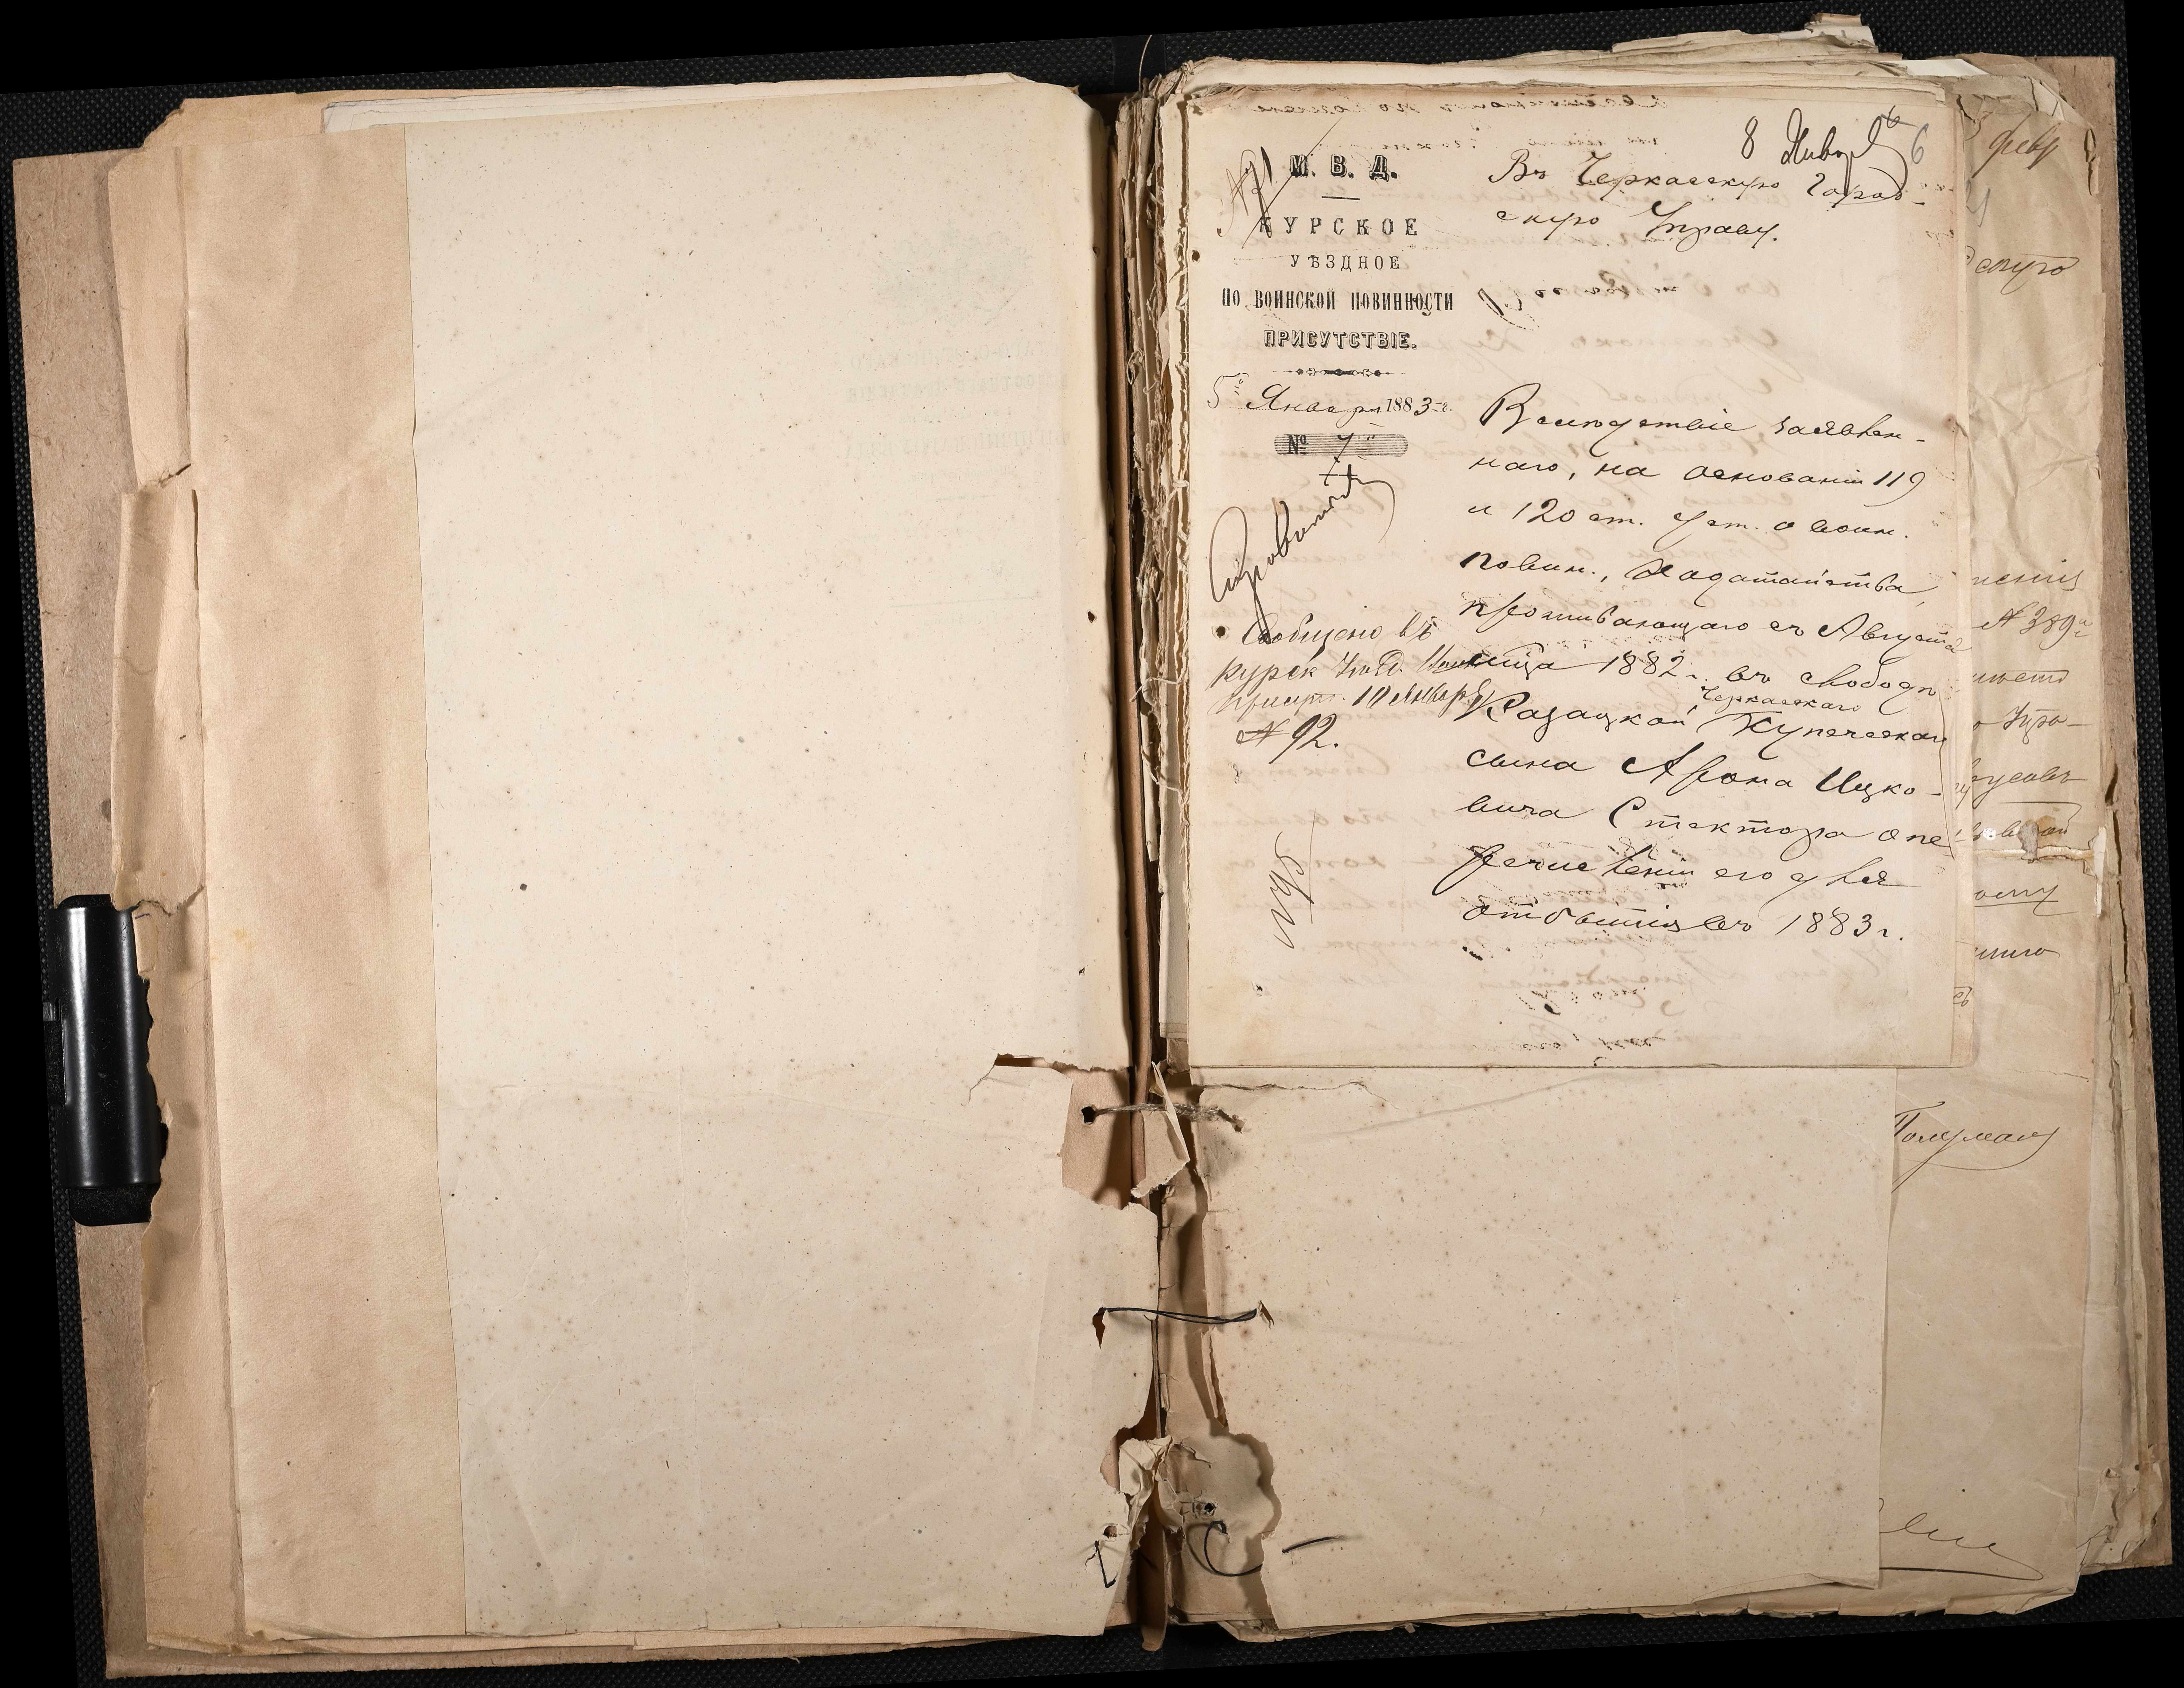 8 Январ 6
М. В. Д.
КУРСКОЕ
УѢЗДНОЕ
ПО ВОИНСКОЙ ПОВИННОСТИ
ПРИСУТСТВІЕ.
5 Января 1883 г.
№ 7
Сообщено въ
Курск. Уѣзд.
Присут. 10 Января
№ 92.
Въ Черкасскую Город-
скую Управу.
Вслѣдствіе заявлен-
наго, на основаніи 119
и 120 ст. Уст. о воин.
повин., ходатайства,
проживающаго съ Августа
мѣсяца 1882 г. въ слободѣ
Казацкой Черкасскаго Купеческаго
сына Арона Ицко-
вича Стектора о пе-
речисленіи его для
отбытія въ 1883 г.
февр
скую
№ 389